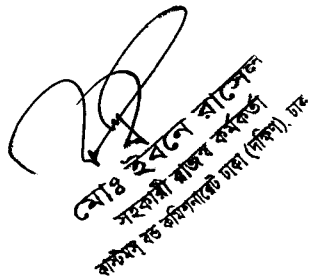 মোঃ ইবনে রাসেল
সহকারী রাজস্ব কর্মকর্তা
কাস্টমস্ বন্ড কমিশনারেট ঢাকা (দক্ষিণ), ঢাকা